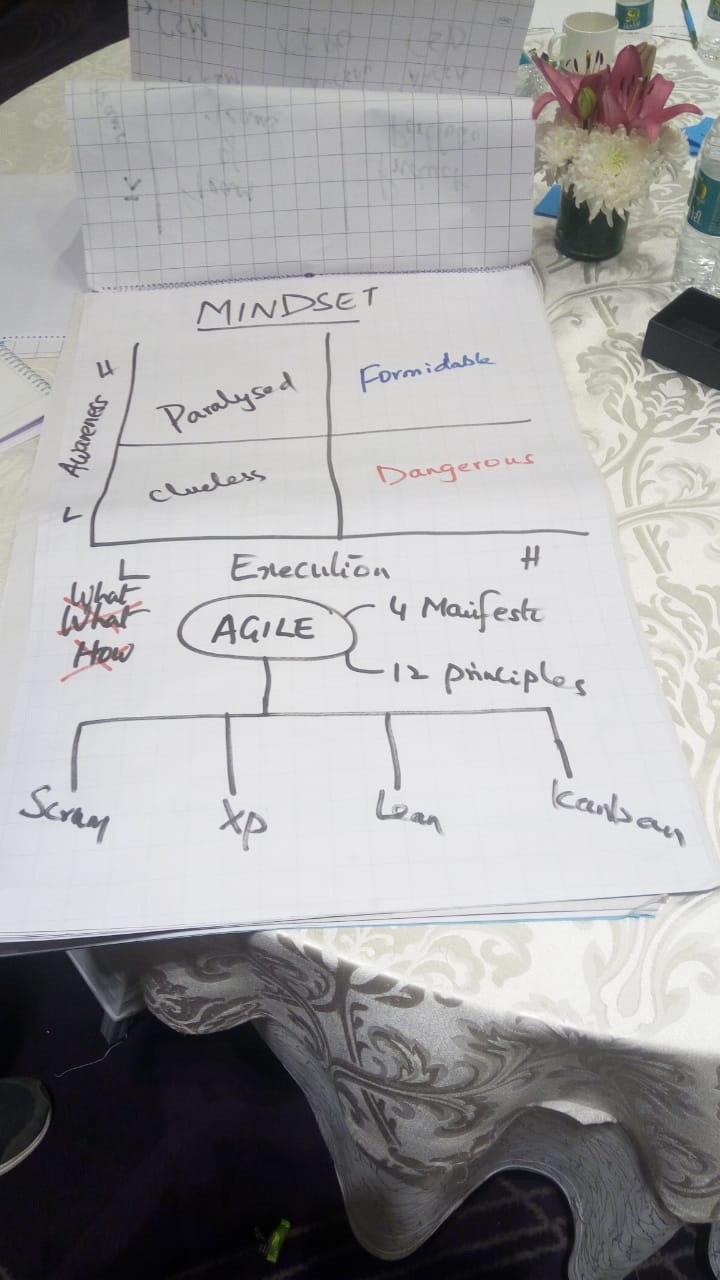 MINDSET
H
Paralysed
Formidable
Awareness
Clueless
Dangerous
L
L
Execution
H
What
What
How
AGILE
4 Manifesto
12 principles
Scrum
XP
Lean
Kanban